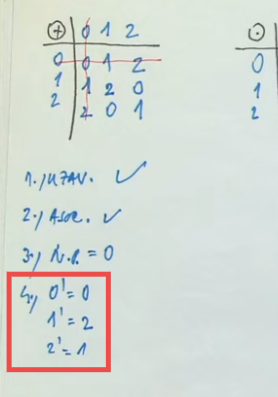 ⊕ 0 1 2
0 0 1 2
1 1 2 0
2 2 0 1
⊙
0
1
2
1., UZAV. ✓
2., ASOC. ✓
3., N.P. = 0
4., 0' = 0
1' = 2
2' = 1